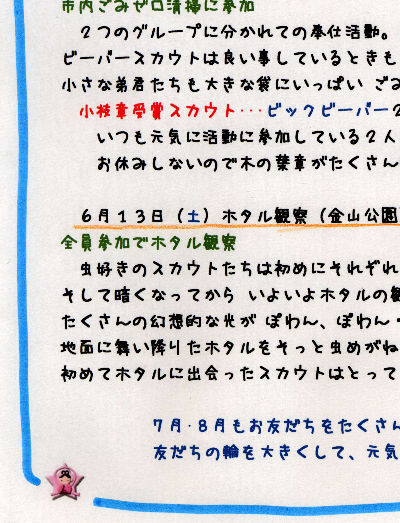 市内ごみゼロ清掃に参加
２つのグループに分かれての奉仕活動。
ビーバースカウトは良い事しているときも
小さな弟君たちも大きな袋にいっぱい ごみ
小枝章受賞スカウト・・・ビックビーバー2
いつも元気に活動に参加している２人
お休みしないので木の葉章がたくさん
６月１３日（土）ホタル観察（金山公園
全員参加でホタル観察
虫好きのスカウトたちは初めにそれぞれ
そして暗くなってから いよいよホタルの観
たくさんの幻想的な光が ぽわん、ぽわん・
地面に舞い降りたホタルをそっと虫めがね
初めてホタルに出会ったスカウトはとって
７月・８月もお友だちをたくさん
友だちの輪を大きくして、元気